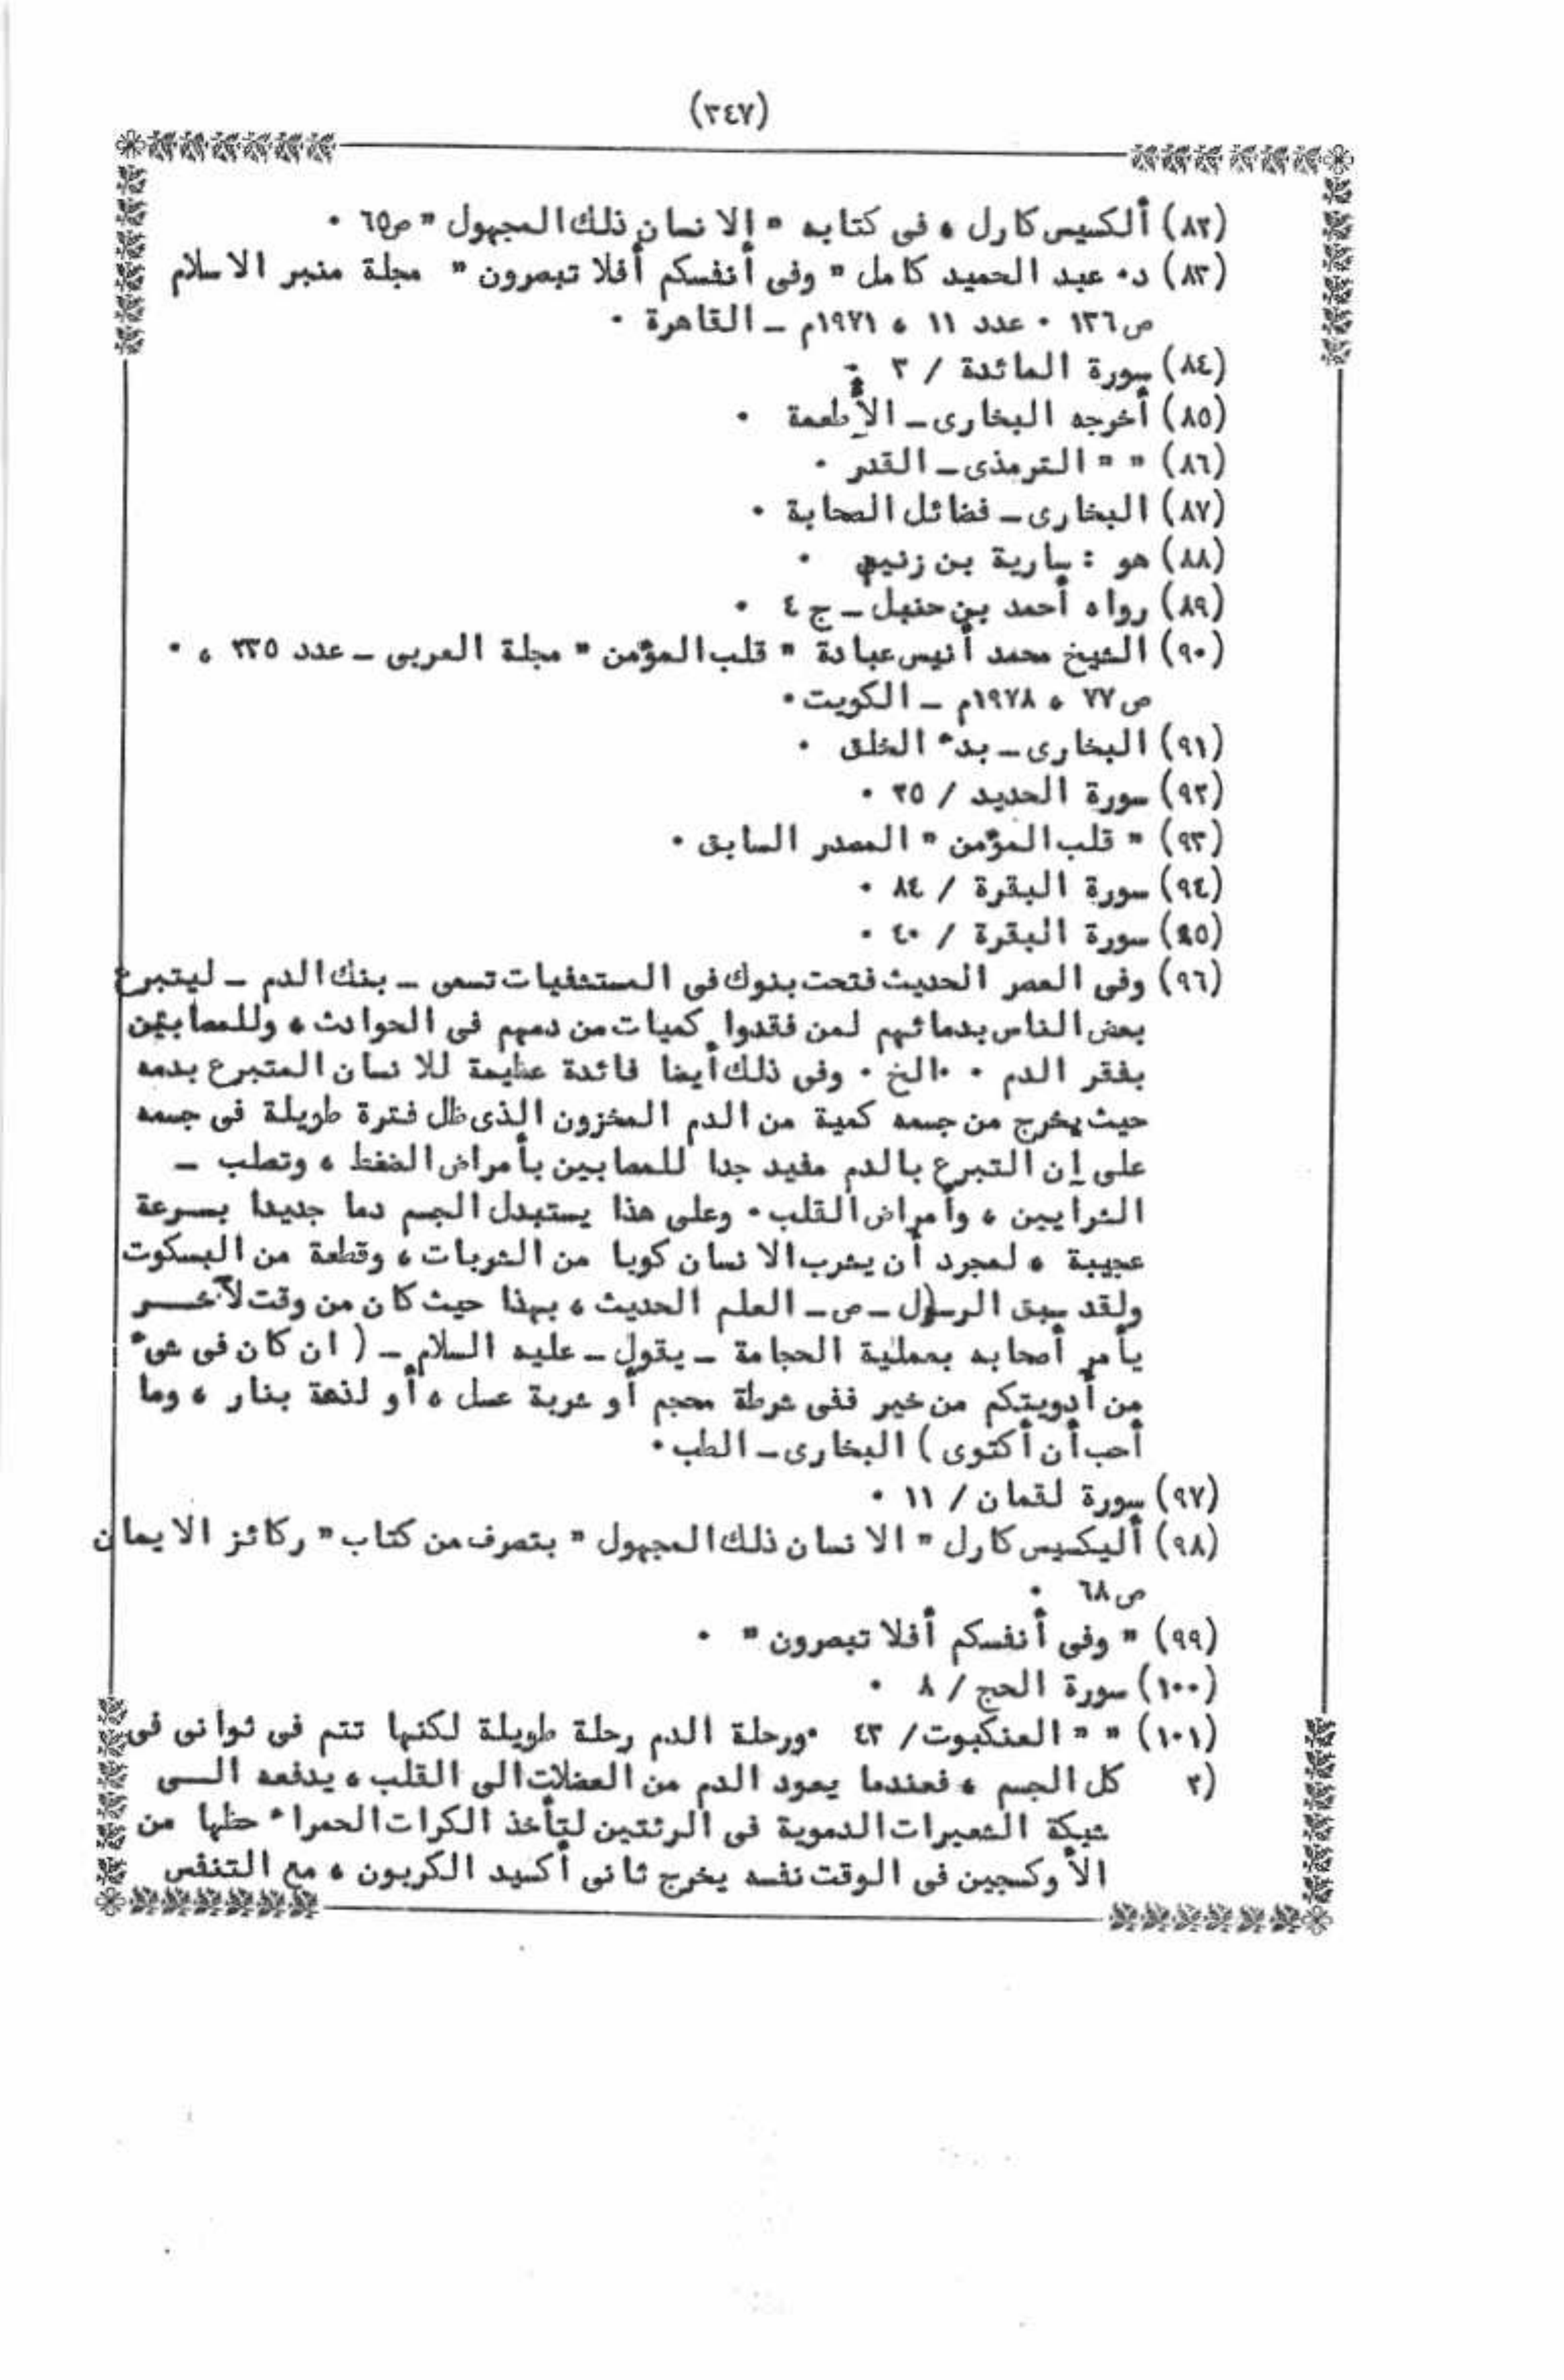 (٣٤٧)
(٨٢) ألكسيس كارل ، فى كتابه " إلانسان ذلك المجهول " ص٦٥ ٠
(٨٣) د٠ عبد الحميد كامل " وفى أنفسكم أفلا تبصرون " مجلة منبر الاسلام
ص١٣٦ ٠ عدد ١١ ، ١٩٧١م ــ القاهرة ٠
(٨٤) سورة المائدة / ٣ ٠
(٨٥) أخرجه البخارى ــ الأطعمة ٠
(٨٦) " " الترمذى ــ القدر ٠
(٨٧) البخارى ــ فضائل الصحابة ٠
(٨٨) هو : سارية بن زنيم ٠
(٨٩) رواه أحمد بن حنبل ــ ج٤ ٠
(٩٠) الشيخ محمد أنيس عبادة " قلب المؤمن " مجلة العربى ــ عدد ٢٣٥ ، ٠
ص٧٧ ، ١٩٧٨م ــ الكويت٠
(٩١) البخارى ــ بدء الخلق ٠
(٩٢) سورة الحديد / ٢٥ ٠
(٩٣) " قلب المؤمن " المصدر السابق ٠
(٩٤) سورة البقرة / ٨٤ ٠
(٩٥) سورة البقرة / ٤٠ ٠
(٩٦) وفى العصر الحديث فتحت بنوك فى المستشفيات تسمى ــ بنك الدم ــ ليتبرع
بعض الناس بدمائهم لمن فقدوا كميات من دمهم فى الحوادث ، وللمصابين
بفقر الدم ٠ ٠الخ ٠ وفى ذلك أيضا فائدة عظيمة للانسان المتبرع بدمه
حيث يخرج من جسمه كمية من الدم المخزون الذى ظل فترة طويلة فى جسمه
على إن التبرع بالدم مفيد جدا للمصابين بأمراض الضغط ، وتصلب ــ
الشرايين ، وأمراض القلب ٠ وعلى هذا يستبدل الجسم دما جديدا بسرعة
عجيبة ، لمجرد أن يشرب الانسان كوبا من الشربات ، وقطعة من البسكوت
ولقد سبق الرسول ــ ص ــ العلم الحديث ، بهذا حيث كان من وقت لآخــــر
يأمر أصحابه بعملية الحجامة ــ يقول ــ عليه السلام ــ ( ان كان فى شىء
من أدويتكم من خير ففى شرطة محجم أو شربة عسل ، أو لذعة بنار ، وما
أحب أن أكتوى ) البخارى ــ الطب ٠
(٩٧) سورة لقمان / ١١ ٠
(٩٨) أليكسيس كارل " الانسان ذلك المجهول " بتصرف من كتاب " ركائز الايمان
ص٦٨ ٠
(٩٩) " وفى أنفسكم أفلا تبصرون " ٠
(١٠٠) سورة الحج / ٨ ٠
(١٠١) " " العنكبوت / ٤٣ ٠ورحلة الدم رحلة طويلة لكنها تتم فى ثوانى فى
(٢ كل الجسم ، فعندما يعود الدم من العضلات الى القلب ، يدفعه الــــى
شبكة الشعيرات الدموية فى الرئتين لتأخذ الكرات الحمراء حظها من
الأوكسجين فى الوقت نفسه يخرج ثانى أكسيد الكربون ، مع التنفس